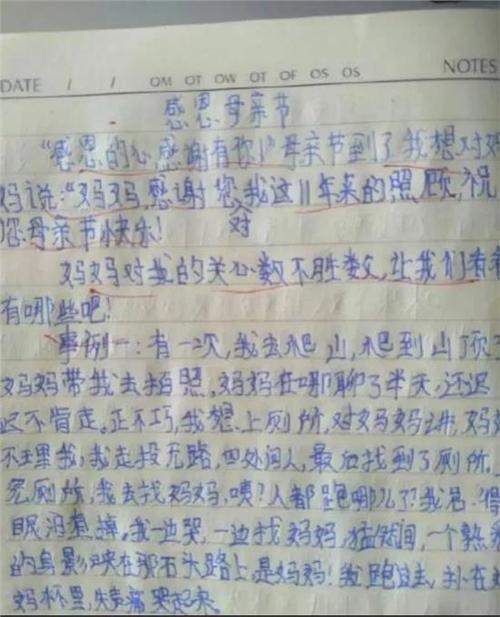 DATE / / OM OT OW OT OF OS OS NOTES
感恩母亲节
“感恩的心感谢有你!”母亲节到了我想对妈
妈说:“妈妈,感谢您我这11年来的照顾,祝
您母亲节快乐! 对
妈妈对我的关心数不胜数,让我们看看
有哪些吧!
事例一:有一次,我去爬山,爬到山顶了
妈妈带我去拍照,妈妈在哪聊了半天,还迟
迟不肯走。正不巧,我想上厕所,对妈妈讲,妈妈
不理我,我走投无路,四处问人,最后找到了厕所。
完厕所,我去找妈妈,咦?人都跑哪儿了?我急
眼泪直掉。我一边哭,一边找妈妈,猛然间,一个熟
的身影映在那石头路上,是妈妈!我跑过去,扑在
妈怀里,失声痛哭起来。